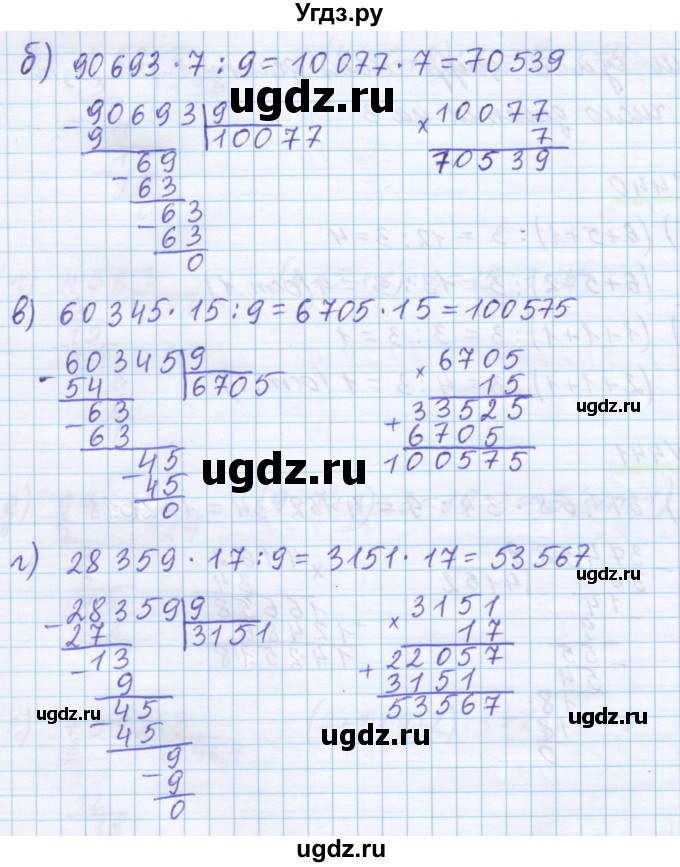 Угдз.ру
б) 90693 · 7 : 9 = 10077 · 7 = 70539
- 90693 | 9
9
10077
- 69
63
- 63
63
0
× 10077
7
70539
ugdz.ru
ugdz.ru
в) 60345 · 15 : 9 = 6705 · 15 = 100575
- 60345 | 9
54
6705
- 63
63
- 45
45
0
× 6705
15
+ 33525
6705
100575
ugdz.ru
ugdz.ru
г) 28359 · 17 : 9 = 3151 · 17 = 53567
- 28359 | 9
27
3151
- 13
9
- 45
45
- 9
9
0
× 3151
17
+ 22057
3151
53567
ugdz.ru
ugdz.ru
ugdz.ru